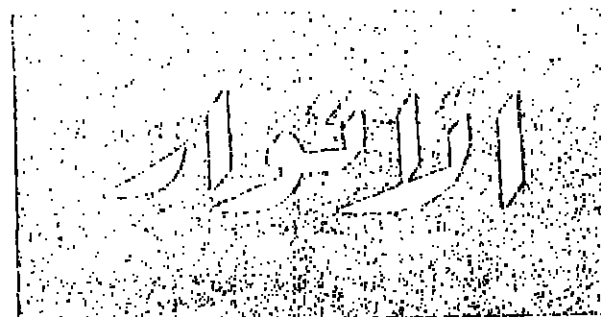 الانوار